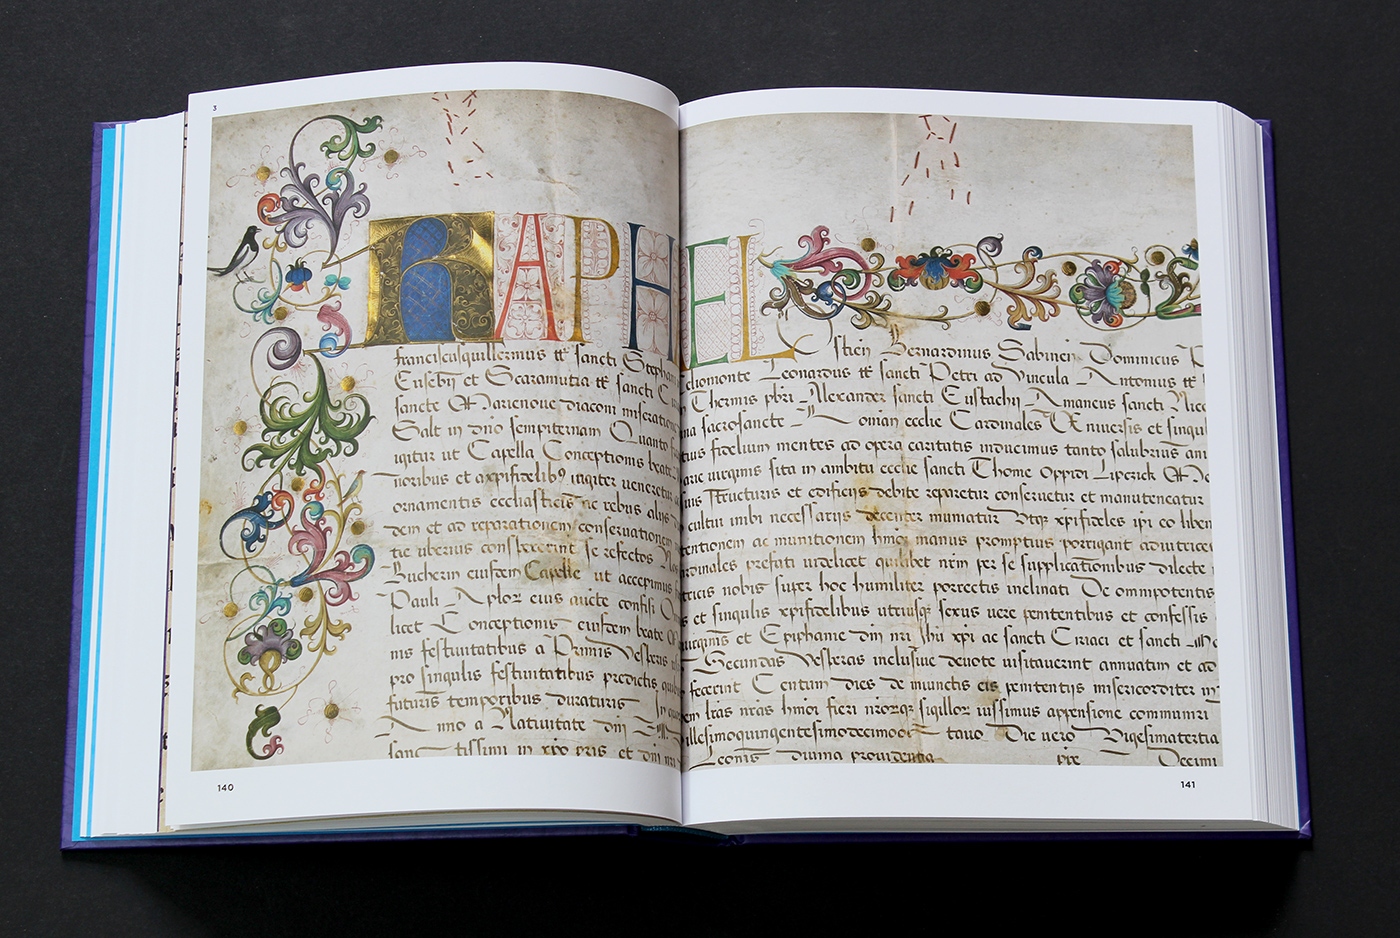 3
RAPHAEL
Ostien Bernardinus Sabinen Dominicus
franciscusguillermus tt sancti Stephani celiomonte Leonardus tt sancti Petri ad Vincula Antonius tt
Eusebij et Scaramutia tt sancti Thermis pbri Alexander sancti Eustachij Amaneus sancti
sancte Marienoue diaconi miseratione sacrosancte Romane ecclie Cardinales Vniuersis et singulis
Salt in dno sempiternam Quanto fidelium mentes ad opera caritatis inducimus tanto salubrius
igitur ut Capella Conceptionis beate Marie uirginis sita in ambitu ecclie sancti Thome Oppidi Lipczick
noribus et a xpifidelibꝯ iugiter ueneretur Structuris et edificijs debite reparetur conseruetur et manuteneatur
ornamentis ecclesiasticis ac rebus alijs diuino cultui inibi necessarijs decenter muniatur Vtqꝫ xpifideles ipi eo
dem et ad reparationem conseruationem manutentionem ac munitionem hmoi manus promptius porrigant adiutrices
tie uberius conspexerint se refectos Nos Cardinales prefati uidelicet quilibet nrm per se supplicationibus dilecte
Bucherin eiusdem Capelle ut accepimus nobis super hoc humiliter porrectis inclinati De omnipotentis
Pauli Aplor eius aucte confisi Omnibus et singulis xpifidelibus utriusqꝫ sexus uere penitentibus et confessis
licet Conceptionis eiusdem beate Marie uirginis et Epiphanie dni nri Jhu xpi ac sancti Ciriaci et sancti
nis festiuitatibus a Primis Vesperis Secundas Vesperas inclusiue deuote uisitauerint annuatim et ad
pro singulis festiuitatibus predictis quibus fecerint Centum dies de iniunctis eis penitentijs misericorditer
futuris temporibus duraturis In quorum fidem lras nras hmoi fieri nrorqꝫ sigillor iussimus appensione communiri
Anno a Natiuitate dni Millesimoquingentesimodecimooctauo Die uero Vigesimatertia
sanctissimi in xpo pris et dni nri Leonis diuina prouidentia pape Decimi
140
141